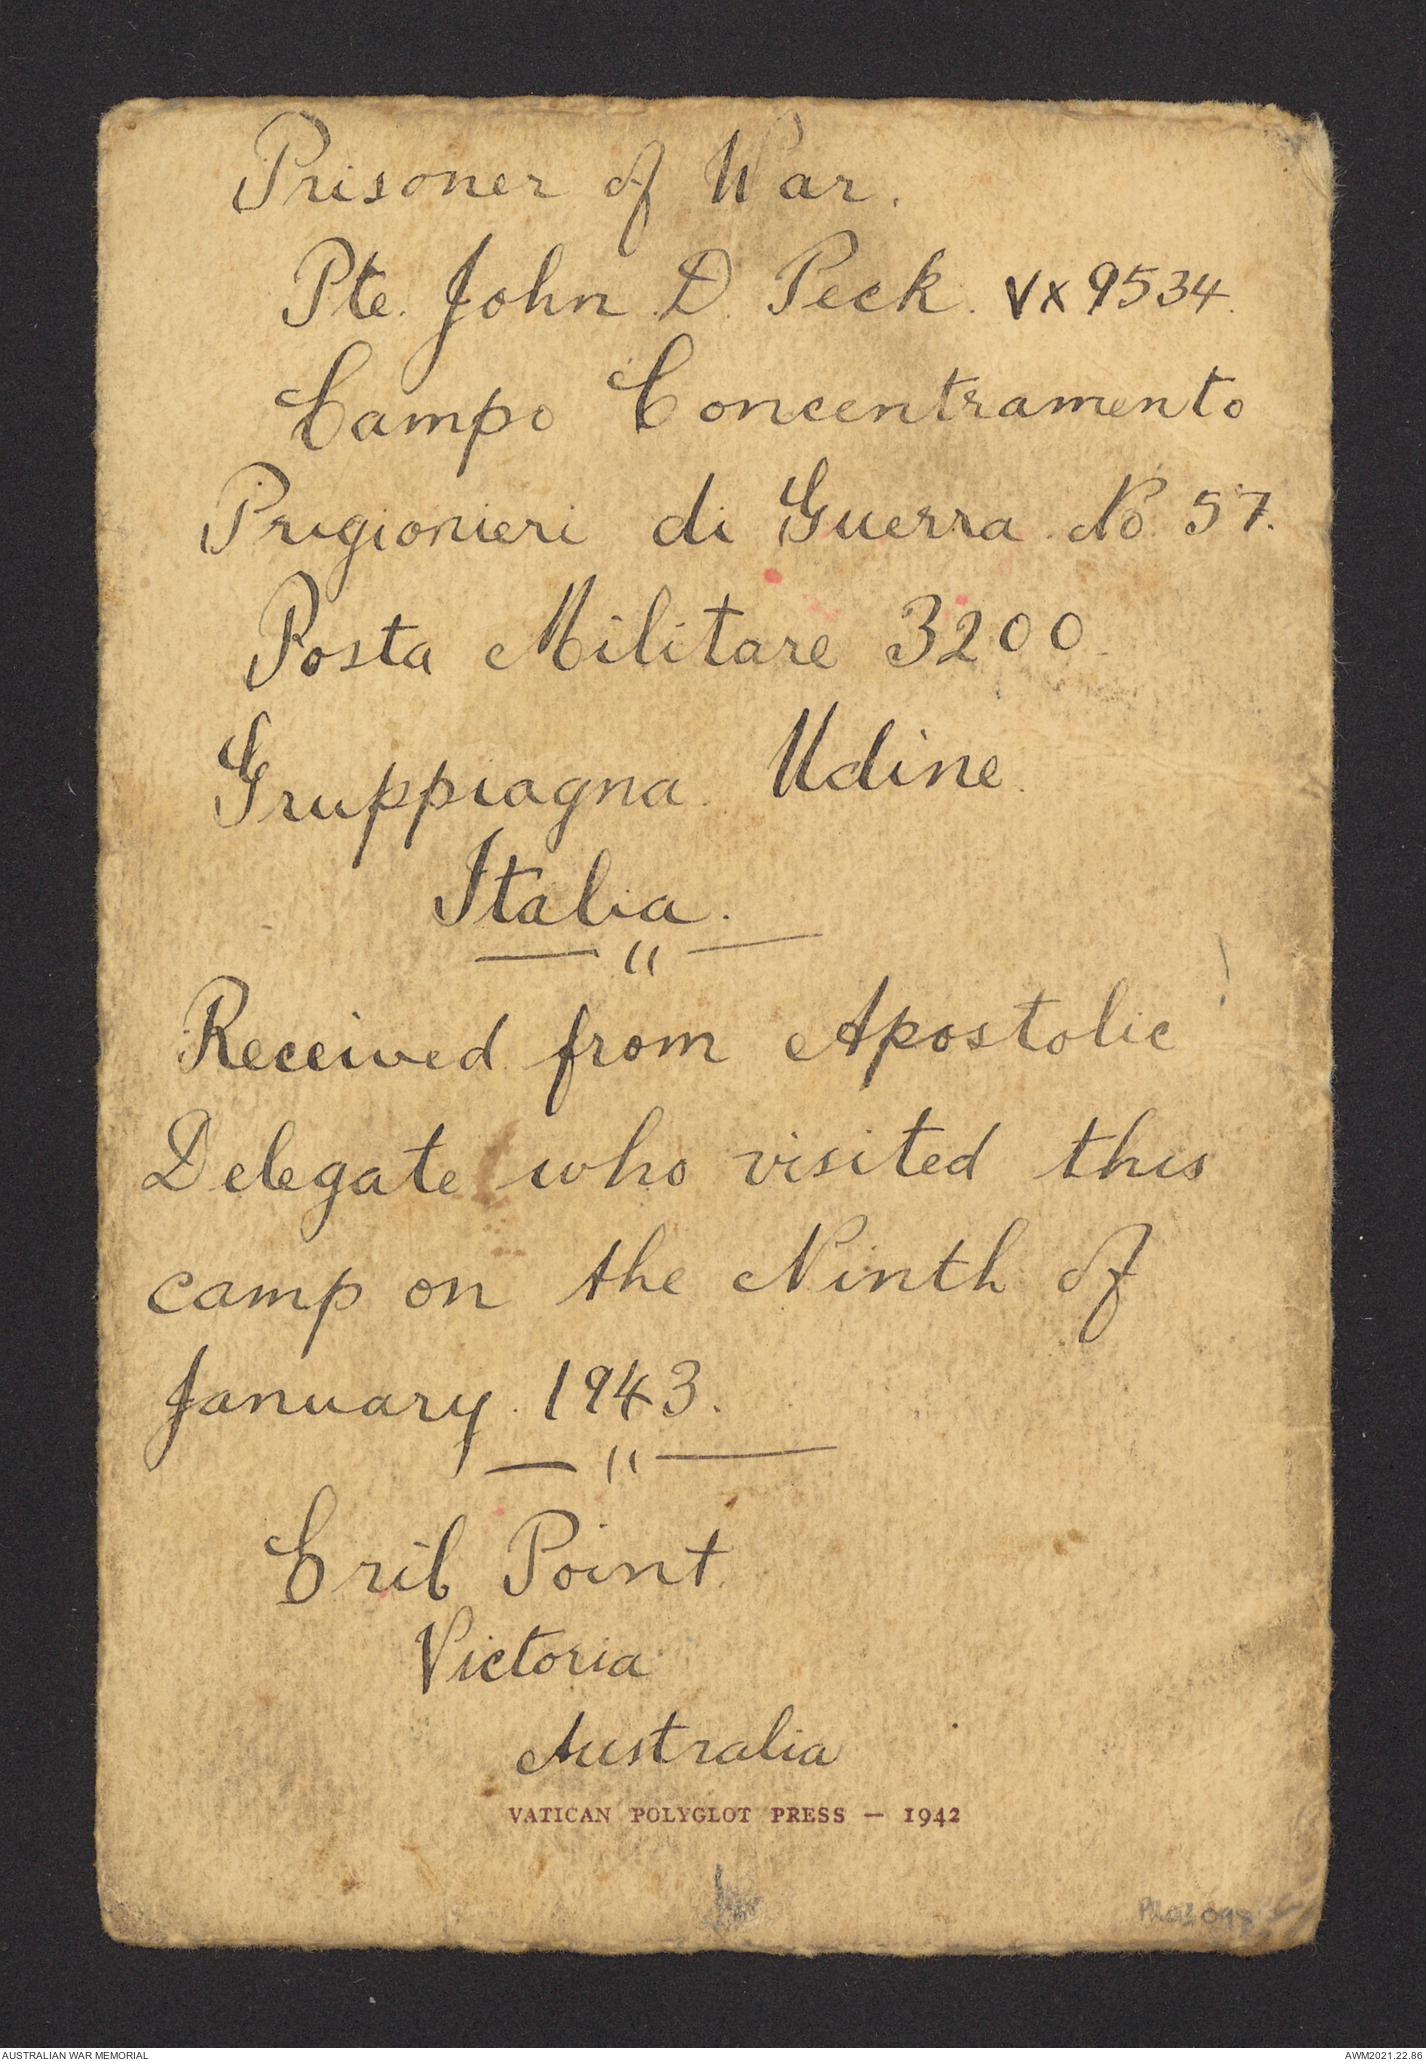 Prisoner of War.
Pte. John D. Peck. VX9534.
Campo Concentramento
Prigionieri di Guerra No. 57.
Posta Militare 3200.
Gruppiagna. Udine.
Italia.
— " —
Received from Apostolic
Delegate who visited this
camp on the Ninth of
January. 1943.
— " —
Crib Point.
Victoria
Australia
VATICAN POLYGLOT PRESS — 1942
AUSTRALIAN WAR MEMORIAL
AWM2021.22.86